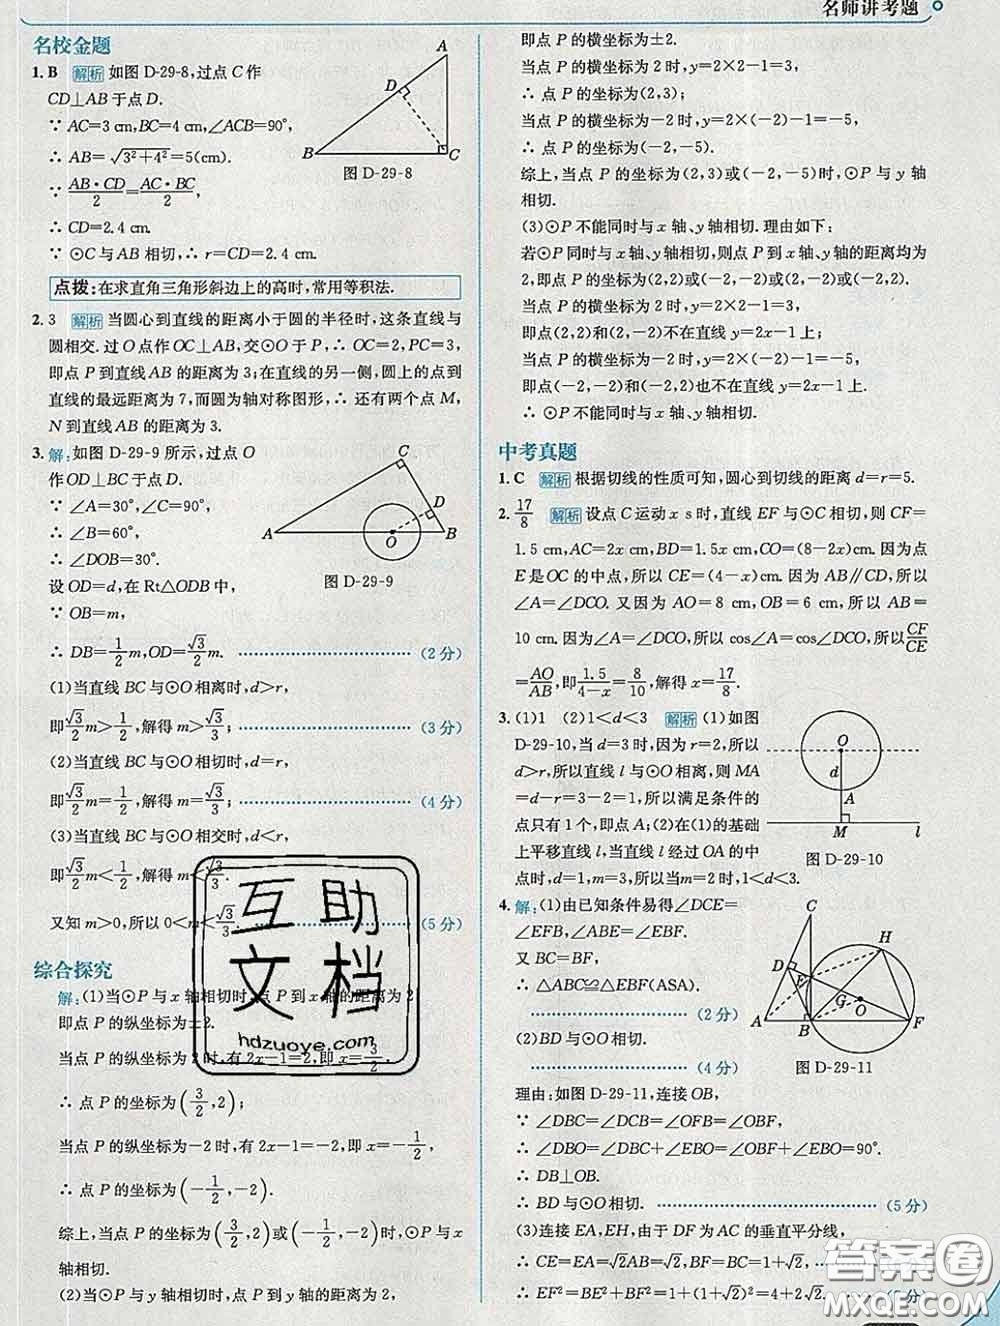 名师讲考题
名校金题
1. B 解析 如图 D-29-8,过点 C 作
CD⊥AB 于点 D.
∵ AC=3 cm,BC=4 cm,∠ACB=90°,
∴ AB=√(3²+4²)=5(cm).
∵ AB·CD/2=AC·BC/2,
∴ CD=2.4 cm.
∵ ⊙C 与 AB 相切,∴ r=CD=2.4 cm.
A
D
B
C
图 D-29-8
点拨:在求直角三角形斜边上的高时,常用等积法.
2. 3 解析 当圆心到直线的距离小于圆的半径时,这条直线与
圆相交.过 O 点作 OC⊥AB,交⊙O 于 P,∴ OC=2,PC=3,
即点 P 到直线 AB 的距离为 3;在直线的另一侧,圆上的点到
直线的最远距离为 7,而圆为轴对称图形,∴ 还有两个点 M,
N 到直线 AB 的距离为 3.
3. 解:如图 D-29-9 所示,过点 O
作 OD⊥BC 于点 D.
∵ ∠A=30°,∠C=90°,
∴ ∠B=60°,
∴ ∠DOB=30°.
设 OD=d,在 Rt△ODB 中,
∵ OB=m,
∴ DB=1/2 m,OD=√3/2 m. (2 分)
C
D
A
O
B
图 D-29-9
(1)当直线 BC 与⊙O 相离时,d>r,
即√3/2 m>1/2,解得 m>√3/3; (3 分)
(2)当直线 BC 与⊙O 相切时,d=r,
即√3/2 m=1/2,解得 m=√3/3; (4 分)
(3)当直线 BC 与⊙O 相交时,d<r,
即√3/2 m<1/2,解得 m<√3/3,
又知 m>0,所以 0<m<√3/3. (5 分)
综合探究
解:(1)当⊙P 与 x 轴相切时,点 P 到 x 轴的距离为 2,
即点 P 的纵坐标为±2.
当点 P 的纵坐标为 2 时,有 2x-1=2,即 x=3/2,
∴ 点 P 的坐标为(3/2,2);
当点 P 的纵坐标为-2 时,有 2x-1=-2,即 x=-1/2,
∴ 点 P 的坐标为(-1/2,-2).
综上,当点 P 的坐标为(3/2,2)或(-1/2,-2)时,⊙P 与 x
轴相切.
(2)当⊙P 与 y 轴相切时,点 P 到 y 轴的距离为 2,
即点 P 的横坐标为±2.
当点 P 的横坐标为 2 时,y=2×2-1=3,
∴ 点 P 的坐标为(2,3);
当点 P 的横坐标为-2 时,y=2×(-2)-1=-5,
∴ 点 P 的坐标为(-2,-5).
综上,当点 P 的坐标为(2,3)或(-2,-5)时,⊙P 与 y 轴
相切.
(3)⊙P 不能同时与 x 轴、y 轴相切.理由如下:
若⊙P 同时与 x 轴、y 轴相切,则点 P 到 x 轴、y 轴的距离均为
2,即点 P 的坐标为(2,2)或(-2,-2)或(2,-2)或(-2,2).
当点 P 的横坐标为 2 时,y=2×2-1=3,
即点(2,2)和(2,-2)不在直线 y=2x-1 上;
当点 P 的横坐标为-2 时,y=2×(-2)-1=-5,
即点(-2,-2)和(-2,2)也不在直线 y=2x-1 上.
∴ ⊙P 不能同时与 x 轴、y 轴相切.
中考真题
1. C 解析 根据切线的性质可知,圆心到切线的距离 d=r=5.
2. 17/8 解析 设点 C 运动 x s 时,直线 EF 与⊙C 相切,则 CF=
1.5 cm,AC=2x cm,BD=1.5x cm,CO=(8-2x)cm.因为点
E 是 OC 的中点,所以 CE=(4-x)cm.因为 AB∥CD,所以
∠A=∠DCO.又因为 AO=8 cm,OB=6 cm,所以 AB=
10 cm.因为∠A=∠DCO,所以 cos∠A=cos∠DCO,所以CF/CE
=AO/AB,即1.5/(4-x)=8/10,解得 x=17/8.
3. (1)1 (2)1<d<3 解析 (1)如图
D-29-10,当 d=3 时,因为 r=2,所以
d>r,所以直线 l 与⊙O 相离,则 MA
=d-r=3-2=1,所以满足条件的
点只有 1 个,即点 A;(2)在(1)的基础
上平移直线 l,当直线 l 经过 OA 的中
点时,d=1,m=3,所以当 m=2 时,1<d<3.
O
d
A
M
l
图 D-29-10
4. 解:(1)由已知条件易得∠DCE=
∠EFB,∠ABE=∠EBF.
又 BC=BF,
∴ △ABC≌△EBF(ASA).
(2 分)
(2)BD 与⊙O 相切.
(4 分)
C
H
D
E
G
O
A
B
F
图 D-29-11
理由:如图 D-29-11,连接 OB,
∵ ∠DBC=∠DCB=∠OFB=∠OBF,
∴ ∠DBO=∠DBC+∠EBO=∠OBF+∠EBO=90°.
∴ DB⊥OB.
∴ BD 与⊙O 相切. (5 分)
(3)连接 EA,EH,由于 DF 为 AC 的垂直平分线,
∴ CE=EA=√2AB=√2,BF=BC=1+√2.
∴ EF²=BE²+BF²=1+(1+√2)²=4+2√2.
互助
文档
hdzuoye.com
答案卷
MXQE.COM